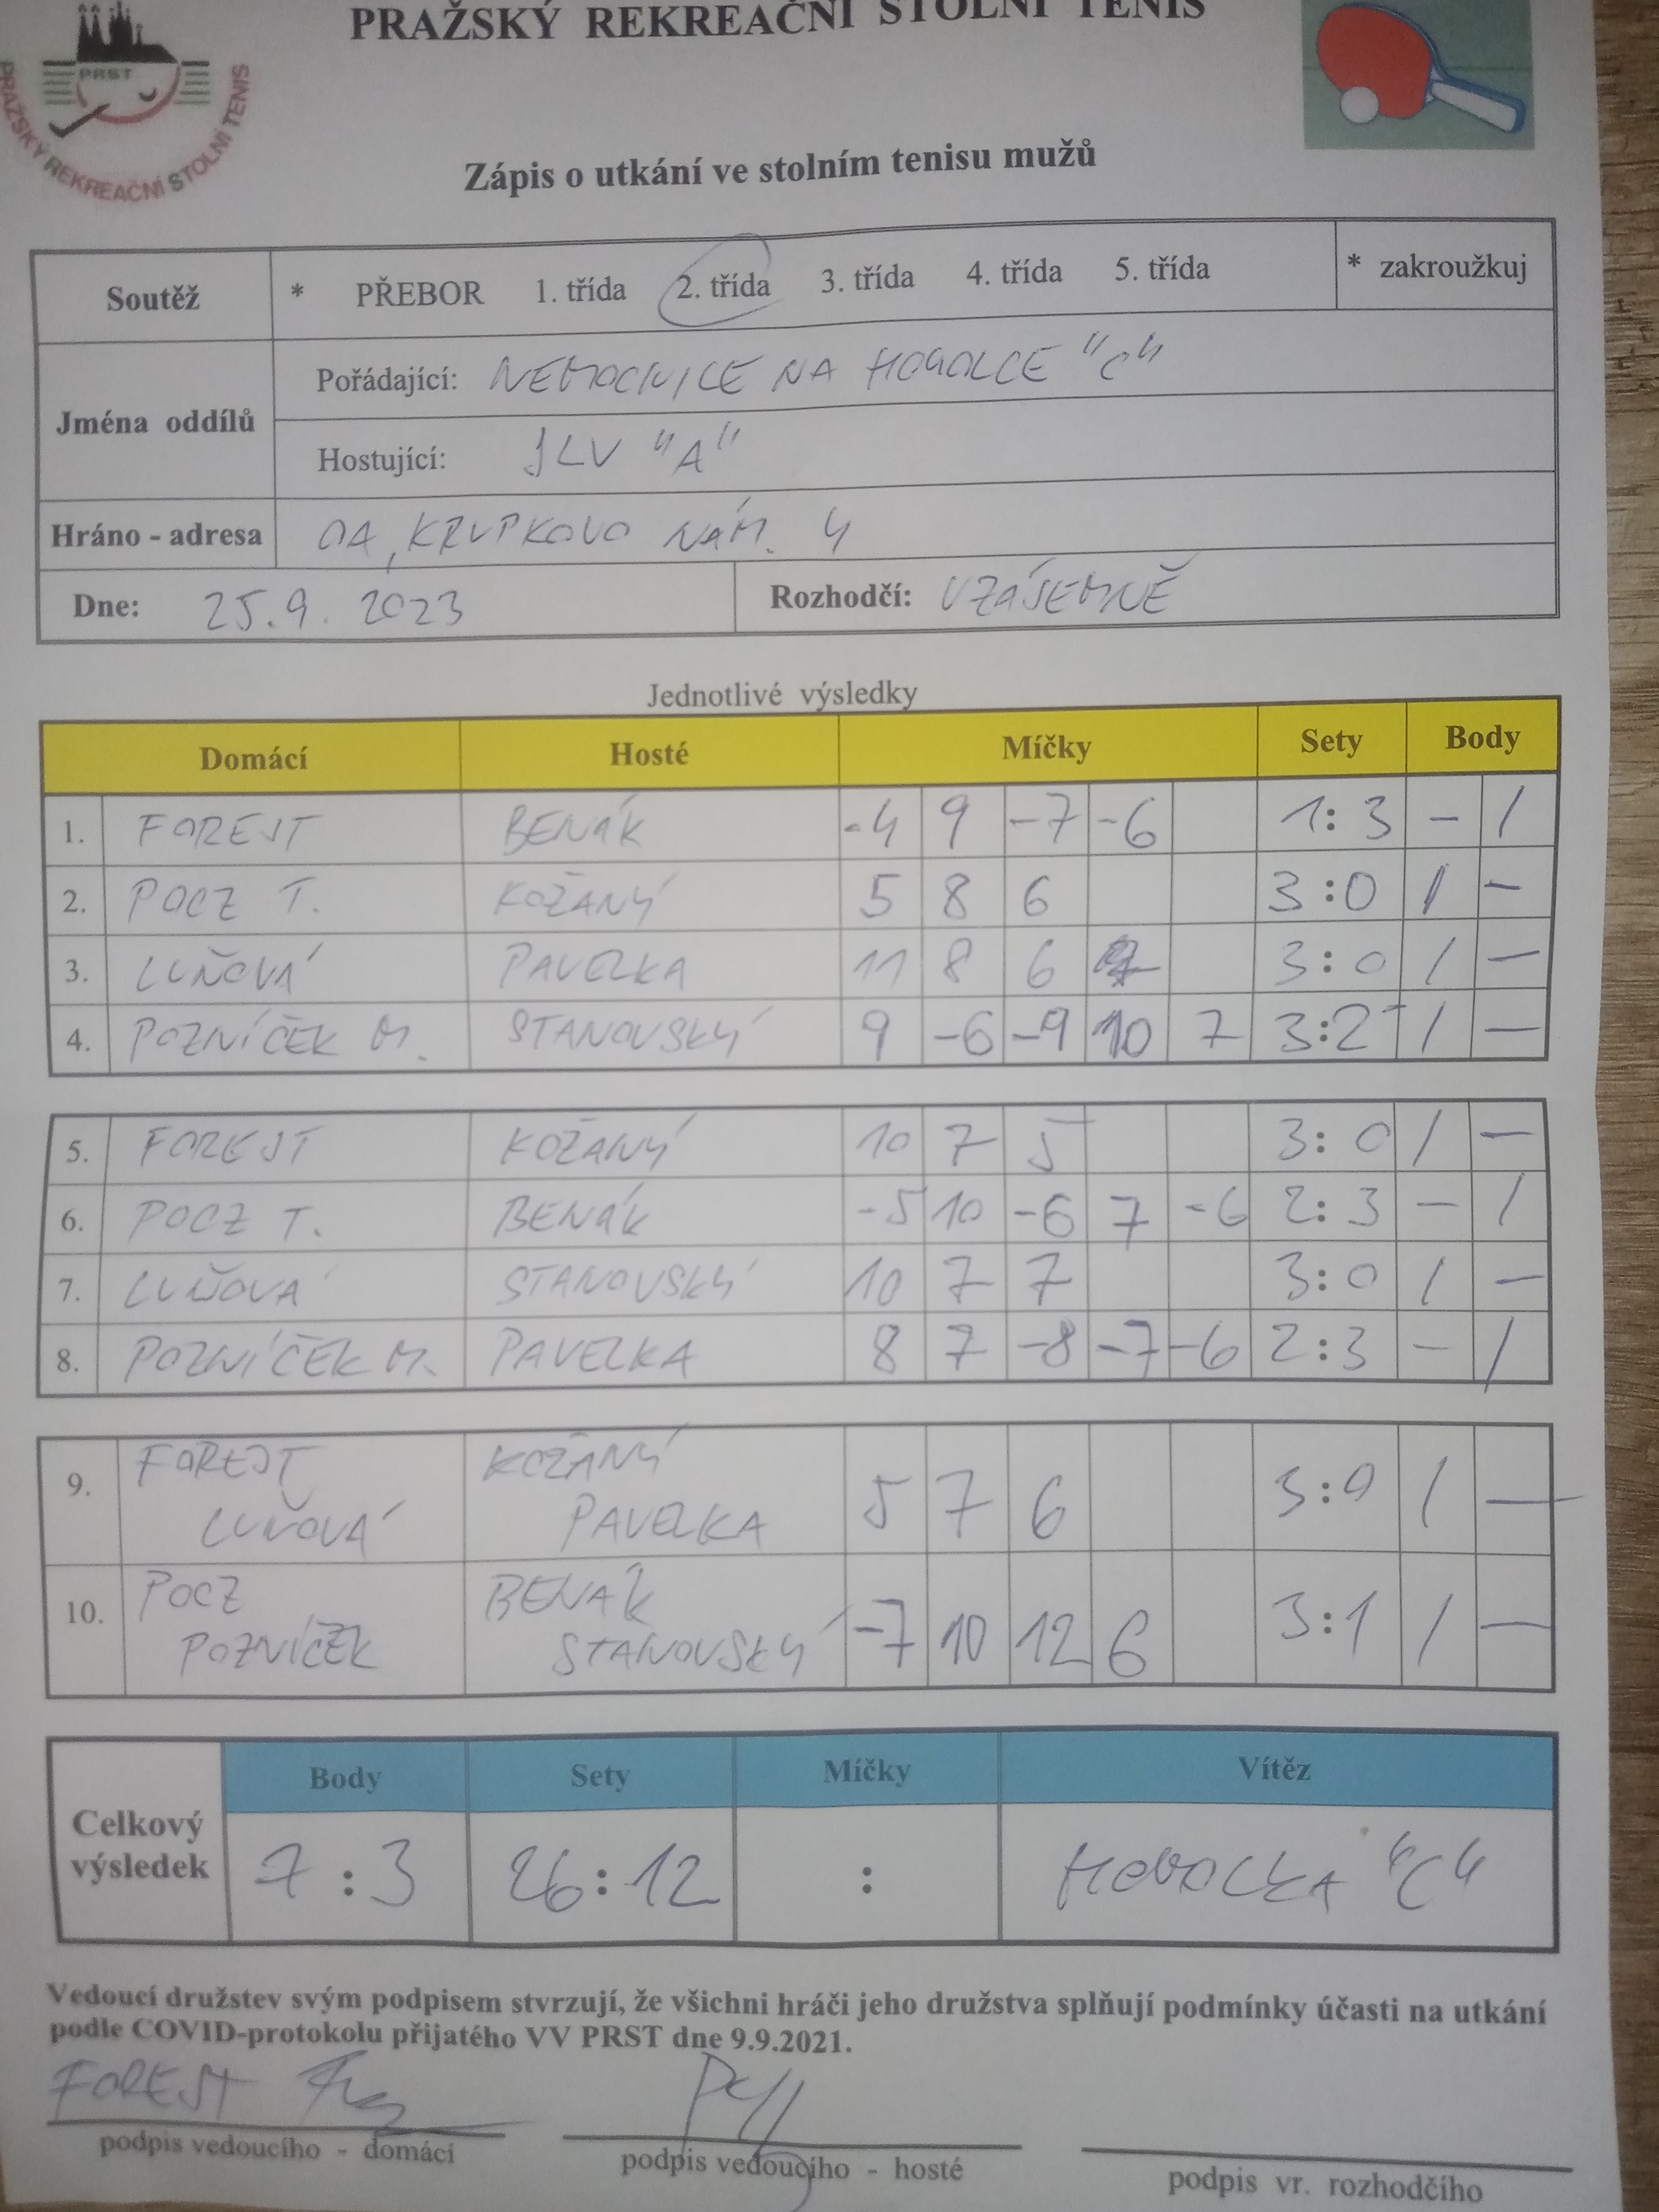 PRAŽSKÝ REKREAČNÍ STOLNÍ TENIS
PRST
PRAŽSKÝ REKREAČNÍ STOLNÍ TENIS
Zápis o utkání ve stolním tenisu mužů
Soutěž * PŘEBOR 1. třída 2. třída 3. třída 4. třída 5. třída * zakroužkuj
Jména oddílů
Pořádající: NEMOCNICE NA HOMOLCE "C"
Hostující: JLV "A"
Hráno - adresa OA, KRUPKOVO NÁM. 4
Dne: 25.9. 2023 Rozhodčí: VZÁJEMNĚ
Jednotlivé výsledky
Domácí Hosté Míčky Sety Body
1. FOREJT BENÁK -4 9 -7 -6 1:3 - /
2. POCZ T. KOŽANÝ 5 8 6 3:0 / -
3. LUŇOVÁ PAVELKA 11 8 6 3:0 / -
4. POZNÍČEK M. STANOVSKÝ 9 -6 -9 10 7 3:2 / -
5. FOREJT KOŽANÝ 10 7 5 3:0 / -
6. POCZ T. BENÁK -5 10 -6 7 -6 2:3 - /
7. LUŇOVÁ STANOVSKÝ 10 7 7 3:0 / -
8. POZNÍČEK M. PAVELKA 8 7 -8 -7 -6 2:3 - /
9. FOREJT KOŽANÝ
LUŇOVÁ PAVELKA 5 7 6 3:0 / -
10. POCZ BENÁK
POZNÍČEK STANOVSKÝ -7 10 12 6 3:1 / -
Celkový výsledek
Body Sety Míčky Vítěz
7:3 26:12 : HOMOLKA "C"
Vedoucí družstev svým podpisem stvrzují, že všichni hráči jeho družstva splňují podmínky účasti na utkání
podle COVID-protokolu přijatého VV PRST dne 9.9.2021.
FOREJT
podpis vedoucího - domácí podpis vedoucího - hosté podpis vr. rozhodčího